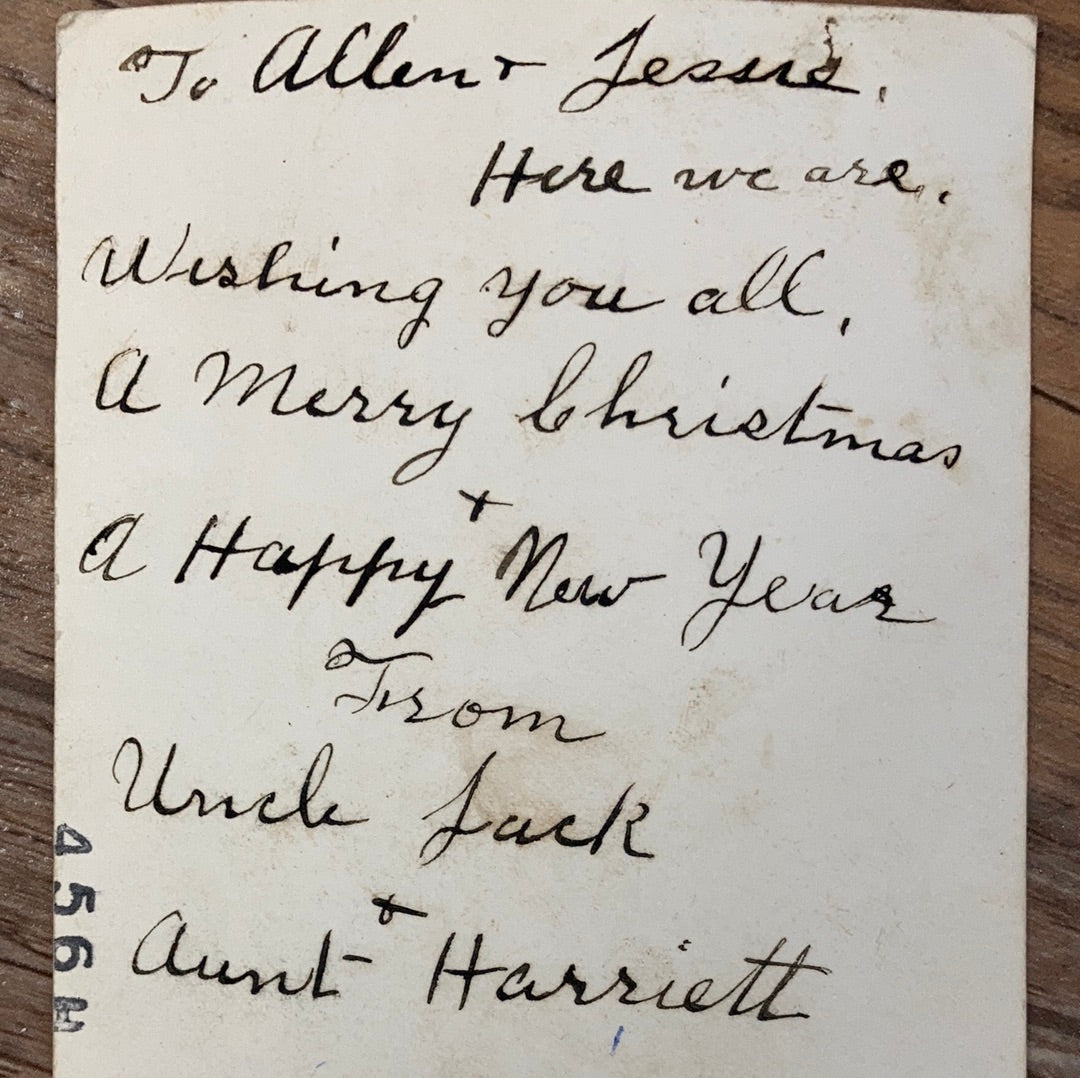 To Allen + Jessie,
Here we are.
Wishing you all,
A Merry Christmas
+
A Happy New Year
From
Uncle Jack
+
Aunt Harriett
456H